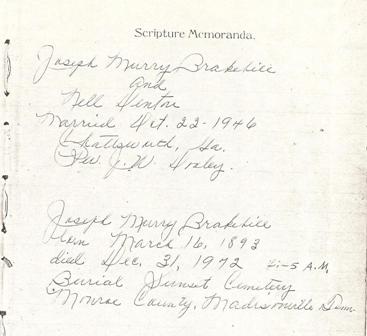 Scripture Memoranda.
Joseph Murry Brakebill
and
Nell Denton
Married Oct. 22-1946
Chattsworth, Ga.
Rev. J. W.
Joseph Murry Brakebill
Born March 16, 1893
died Dec. 31, 1972 A.M.
Burial Sunset Cemetery
Monroe County, Madisonville Tenn